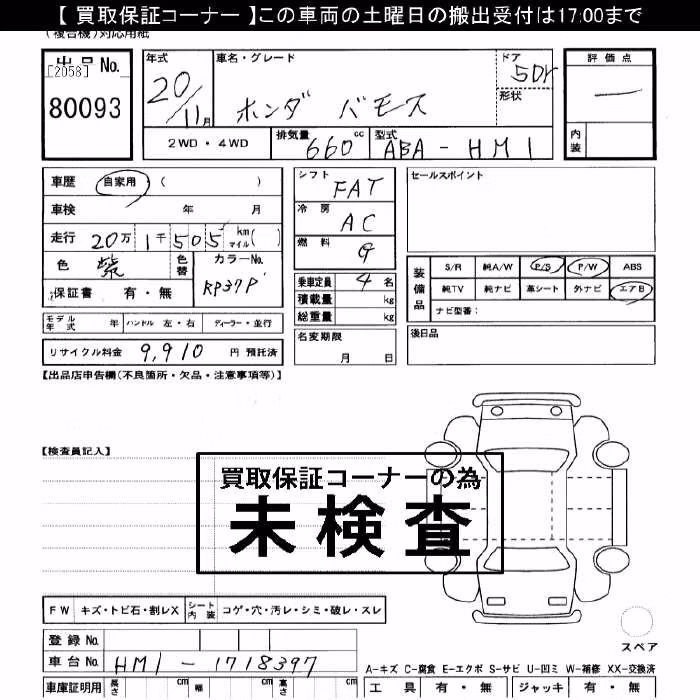 【 買取保証コーナー 】この車両の土曜日の搬出受付は17:00まで
(複合機)対応用紙
出品 No.
[2058]
80093
年式
20/11月
車名・グレード
ホンダ バモス
ドア
5Dr
形状
評価点
—
内装
2WD・4WD
排気量 660 cc
型式 ABA - HM1
車歴 自家用・( )
車検 年 月
走行 20万1千505 km マイル( )
色 紫 色替 カラーNo. RP37P
保証書 有・無
シフト FAT
冷房 AC
燃料 G
乗車定員 4名
積載量 kg
総重量 kg
セールスポイント
装備品
S/R 純A/W P/S P/W ABS
純TV 純ナビ 革シート 外ナビ エアB
ナビ型番:
モデル年式 年 ハンドル 左・右 ディーラー・並行
名変期限
月 日
後日品
リサイクル料金 9,910 円 預託済
【出品店申告欄(不良箇所・欠品・注意事項等)】
【検査員記入】
買取保証コーナーの為
未検査
FW キズ・トビ石・割レX シート内装 コゲ・穴・汚レ・シミ・破レ・スレ
スペア
登録 No.
車台 No. HM1 - 1718397
A-キズ C-腐食 E-エクボ S-サビ U-凹ミ W-補修 XX-交換済
車庫証明用 長さ cm 幅 cm 高さ cm
工具 有・無 ジャッキ 有・無